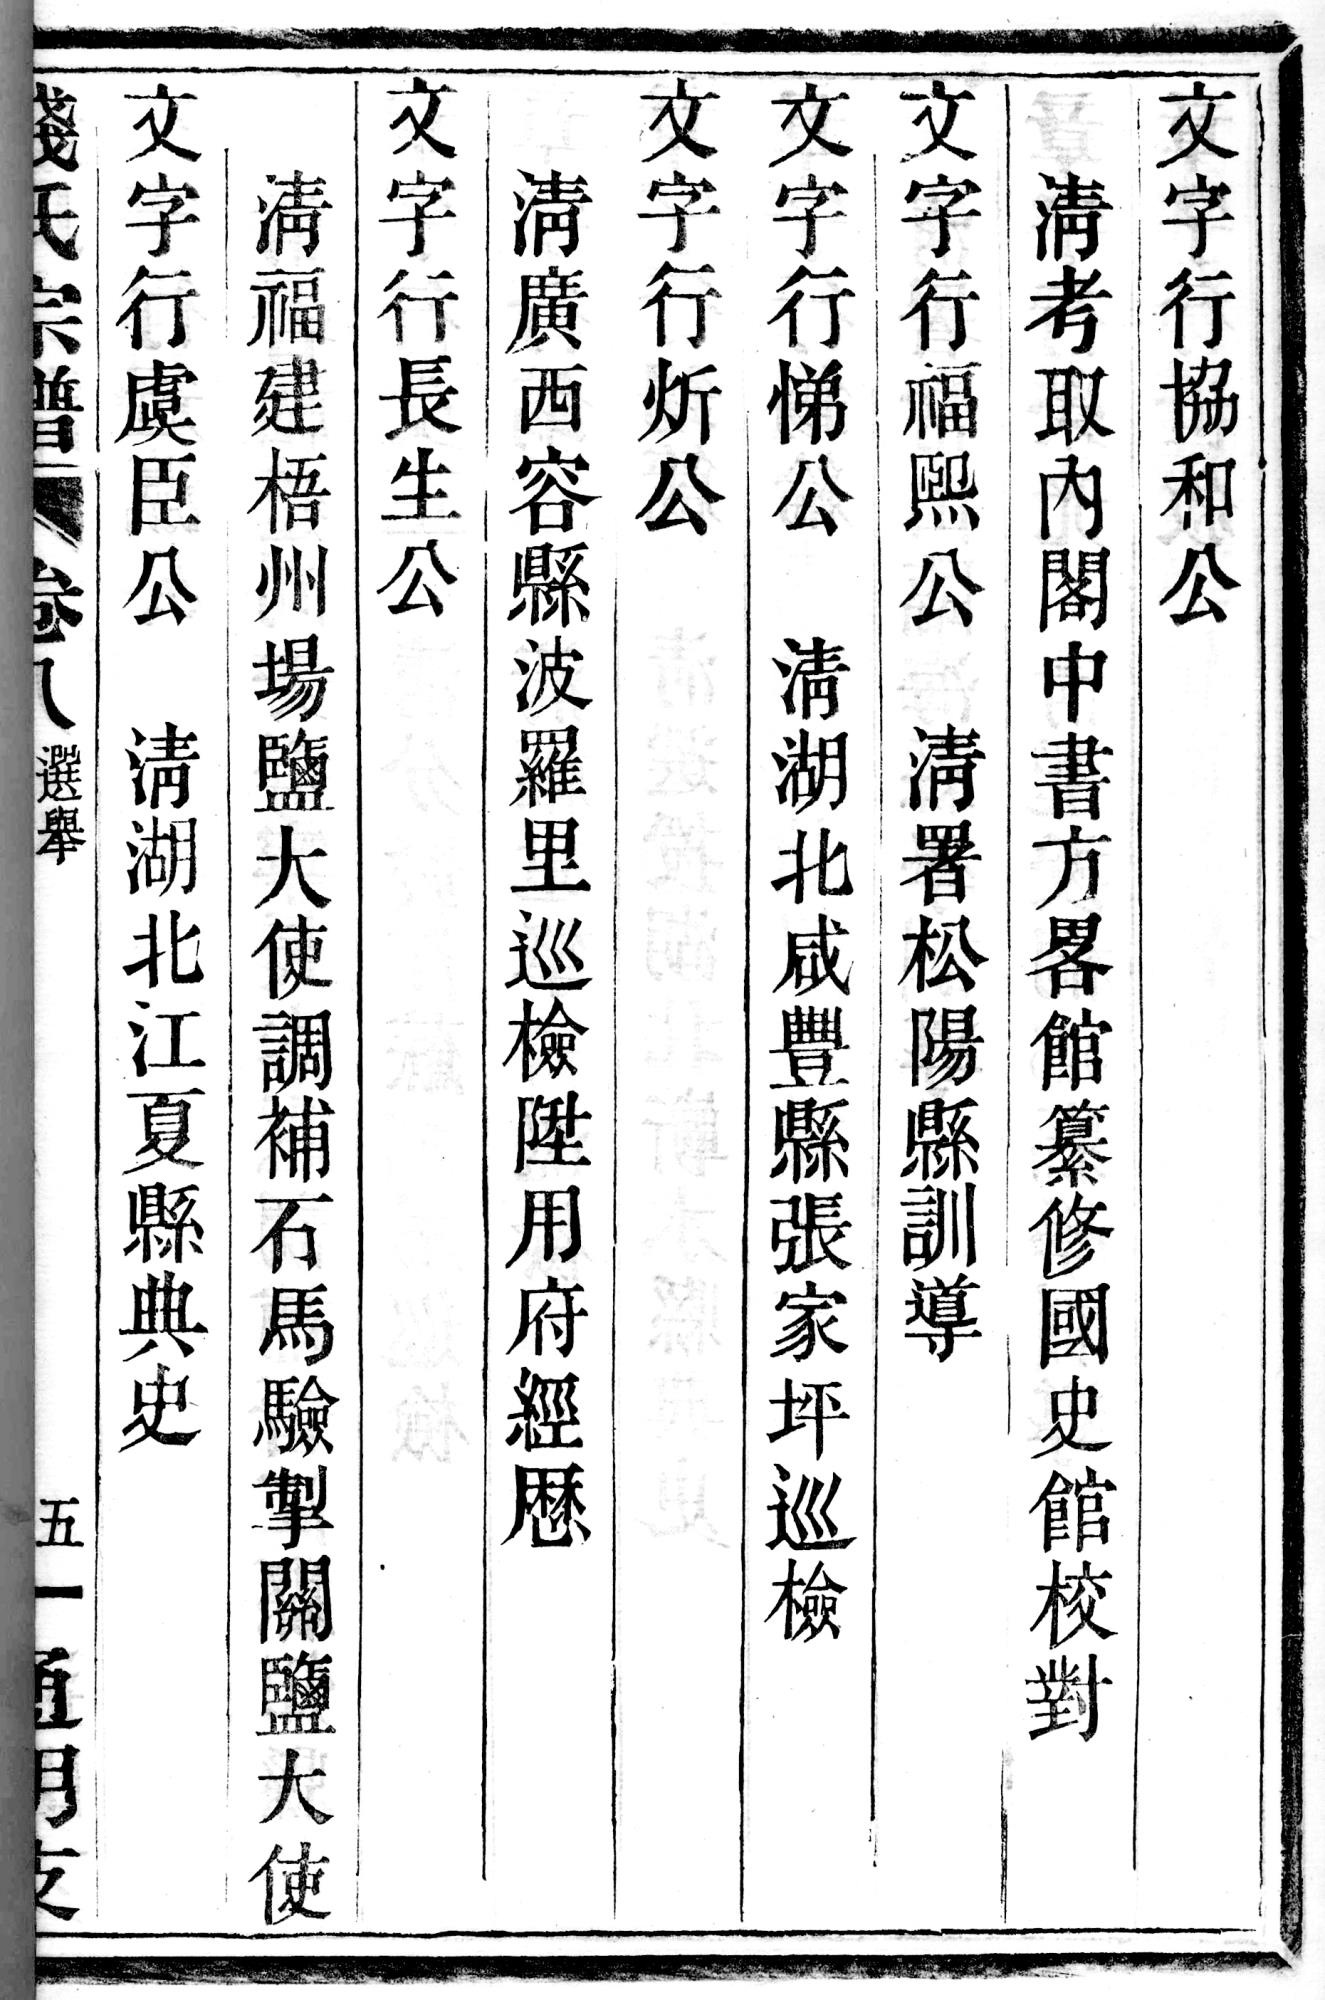 文字行協和公
清考取內閣中書方畧館纂修國史館校對
文字行福熙公　清署松陽縣訓導
文字行悌公　清湖北咸豐縣張家坪巡檢
文字行炘公
清廣西容縣波羅里巡檢陞用府經歷
文字行長生公
清福建梧州場鹽大使調補石馬驗掣關鹽大使
文字行虞臣公　清湖北江夏縣典史
錢氏宗譜　卷八　選舉　五一　通明支